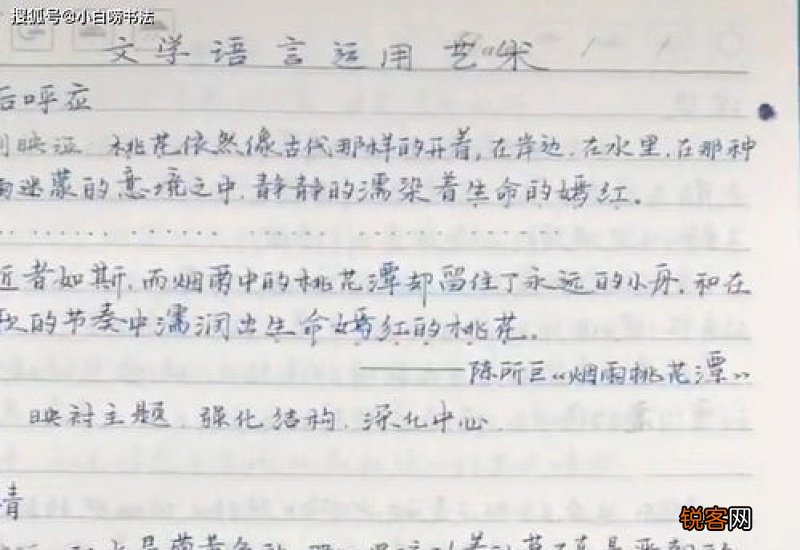 搜狐号@小白唠书法
文学语言运用艺术
后呼应
映证 桃花依然像古代那样的开着,在岸边.在水里.在那种
迷蒙的意境之中.静静的濡染着生命的嫣红。
者如斯.而烟雨中的桃花潭却留住了永远的小舟.和在
的节奏中濡润出生命嫣红的桃花。
——陈所巨《烟雨桃花潭》
映衬主题.强化结构.深化中心.
锐客网